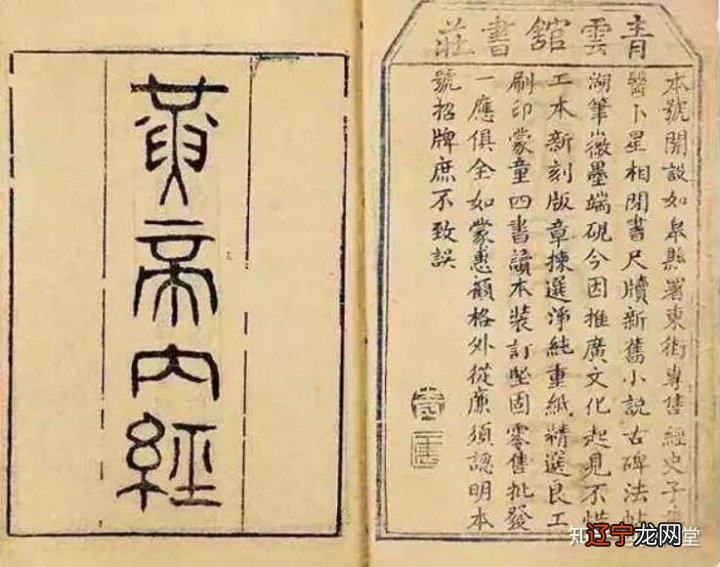 黃帝內經
青雲舘書莊
本號開設如皋縣署東街專售經史子集
醫卜星相閒書尺牘新舊小說古碑法帖
湖筆徽墨端硯今因推廣文化起見不惜
工本新刻版章揀選淨純重紙精選良工
刷印蒙童四書讀本裝訂堅固零售批發
一應俱全如蒙惠顧格外從廉須認明本
號招牌庶不致誤
知
辽宁龙网
堂